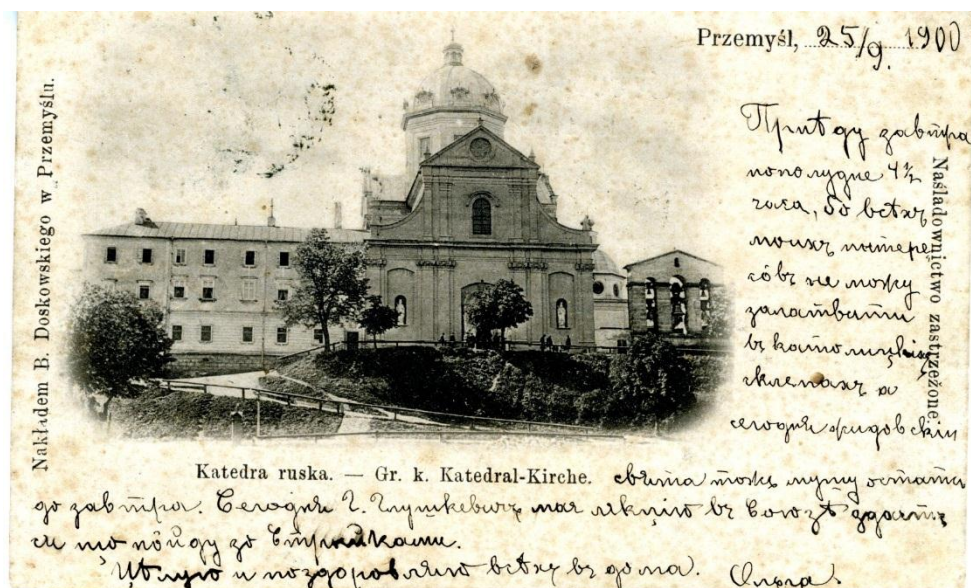 Przemyśl, 25/9. 1900
Nakładem B. Doskowskiego w Przemyślu.
Naśladownictwo zastrzeżone.
Приѣду завтра
пополудне 4½
часа, бо всѣхъ
моихъ интере
сôвъ не можу
залатвити
въ католицкихъ
склепахъ а
сегодня жидовскіи
Katedra ruska. — Gr. k. Katedral-Kirche.
свята тожъ мушу остати
до завтра. Сегодня Г. Глушкевичъ мае лекцію въ Союзѣ здаєтъ
ся що пôйду зо Стрыйками.
Цѣлую и поздоровляю всѣхъ въ дома. Ольга.